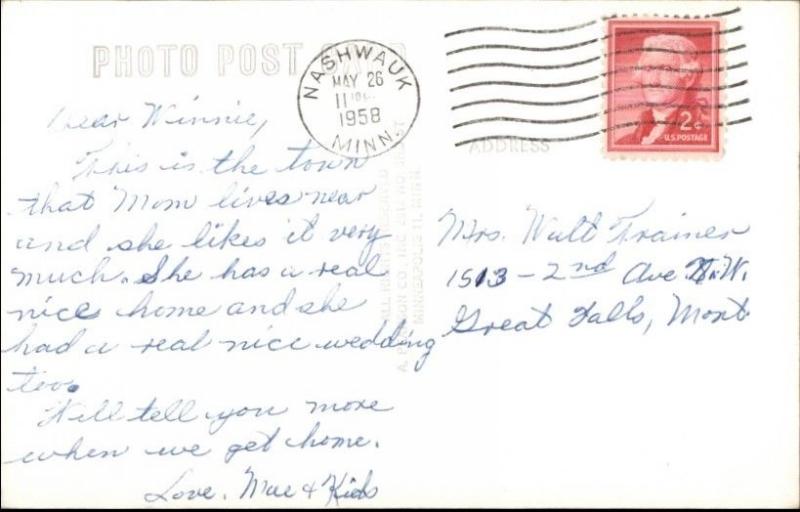 PHOTO POST CARD
NASHWAUK
MAY 26
11
1958
MINN.
2¢
U.S. POSTAGE
ADDRESS
Dear Winnie,
This is the town
that Mom lives near
and she likes it very
much. She has a real
nice home and she
had a real nice wedding
too.
Will tell you more
when we get home.
Love, Mae & Kids
Mrs. Walt Trainer
1513 - 2nd Ave N.W.
Great Falls, Mont
ALL RIGHTS RESERVED
CO., INC.
MINNEAPOLIS 11, MINN.